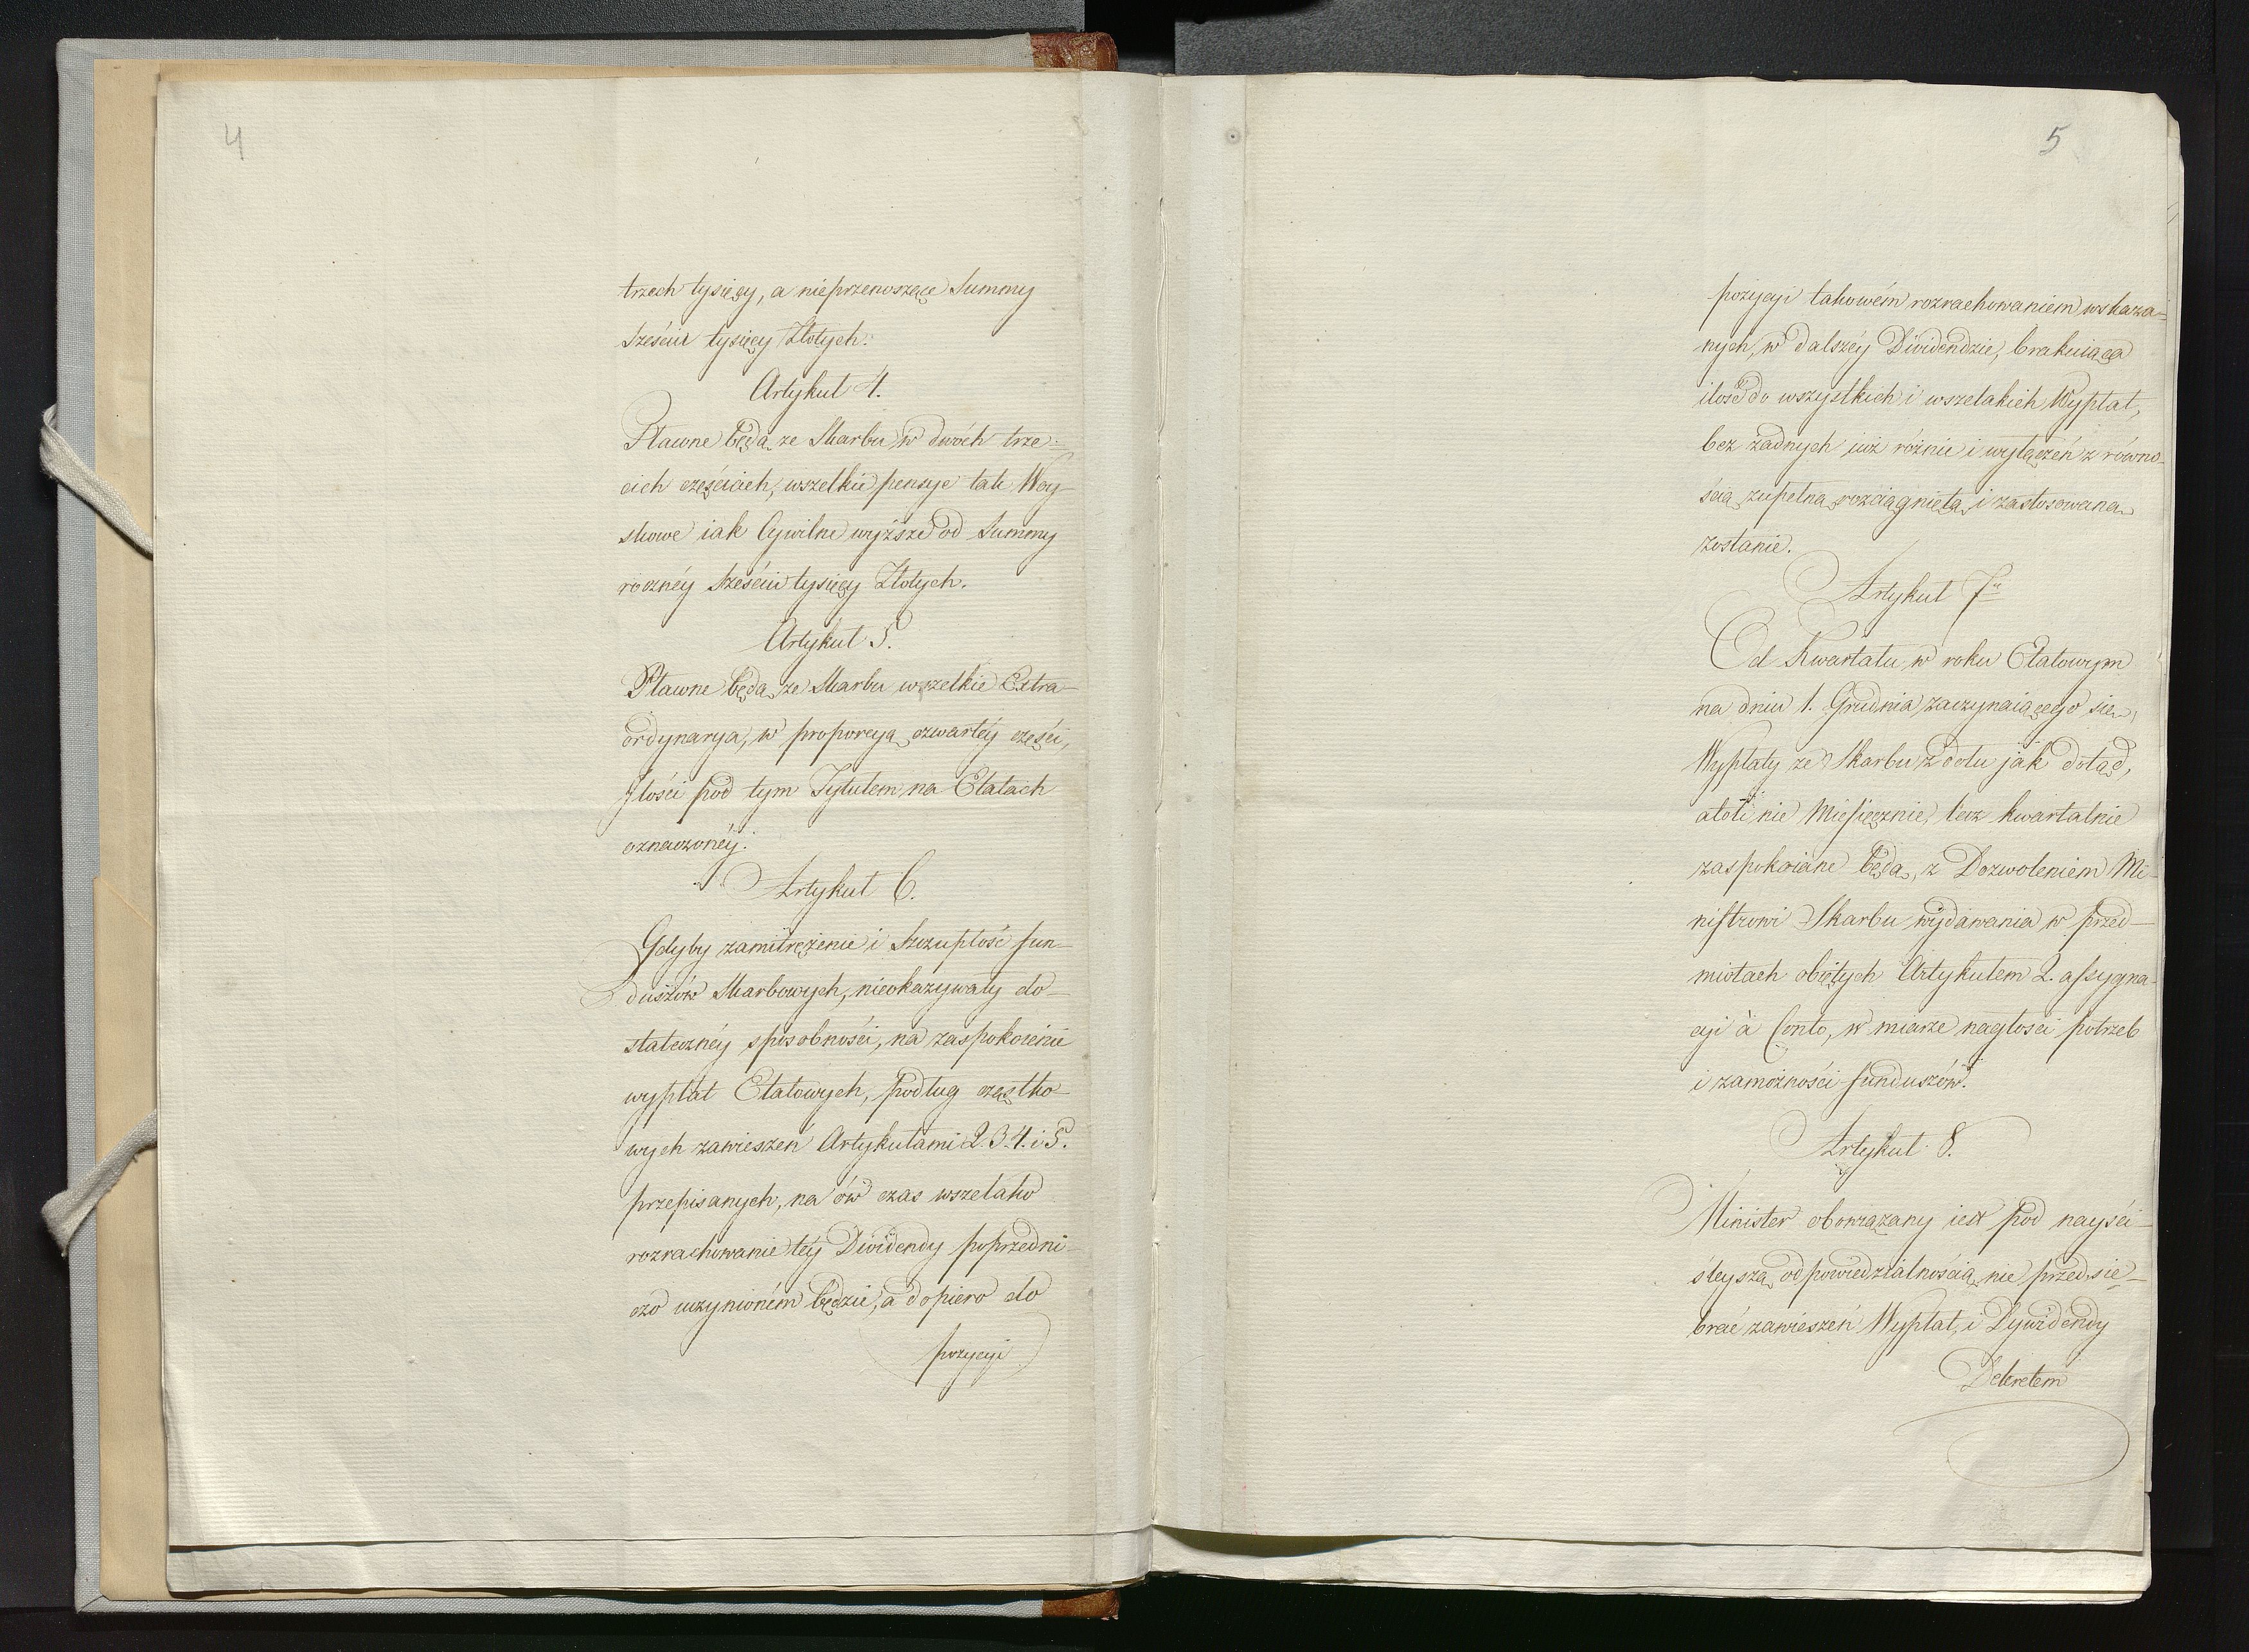 4
trzech tysięcy, a nieprzenoszące Summy
sześciu tysięcy Złotych.
Artykuł 4.
Pławne będą ze Skarbu w dwóch trze-
cich częściach, wszelkie pensye tak Woy-
skowe iak Cywilne wyższe od Summy
rocznéy sześciu tysięcy Złotych.
Artykuł 5.
Pławne będą ze Skarbu wszelkie Extra-
ordynarya, w proporcyą czwartéy części,
Jlości pod tym Tytułem na Etatach
oznaczonéy.
Artykuł 6.
Gdyby zamitrężenie i Szczupłość fun-
duszów Skarbowych, nieokazywały do-
statecznéy sposobności, na zaspokoienie
wypłat Etatowych, podług cząstko-
wych zawieszeń Artykułami 2. 3. 4. i 5.
przepisanych, na ów czas wszelako
rozrachowanie téy Dividendy poprzedni-
czo uczynioném będzie, a dopiero do
pozycyi
5
pozycyi takowém rozrachowaniem wskaza-
nych, w dalszéy Dividendzie, brakuiąca
ilość do wszystkich i wszelakich Wypłat,
bez żadnych iuż różnic i wyłączeń z równo-
ścią zupełną rozciągniętą i zastosowaną
zostanie.
Artykuł 7y
Od Kwartału w roku Etatowym
na dniu 1. Grudnia zaczynaiącego się,
Wypłaty ze Skarbu z dołu jak dotąd,
atoli nie Miesięcznie, lecz kwartalnie
zaspokaiane będą, z Dozwoleniem Mi-
nistrowi Skarbu wydawania w przed-
miotach obiętych Artykułem 2. assygna-
cyi à Conto, w miarze nagłości potrzeb
i zamożności funduszów.
Artykuł 8.
Minister obowiązany iest pod nayści-
śleyszą odpowiedzialnością nie przedsię-
brać zawieszeń Wypłat, i Dywidendy
Dekretem